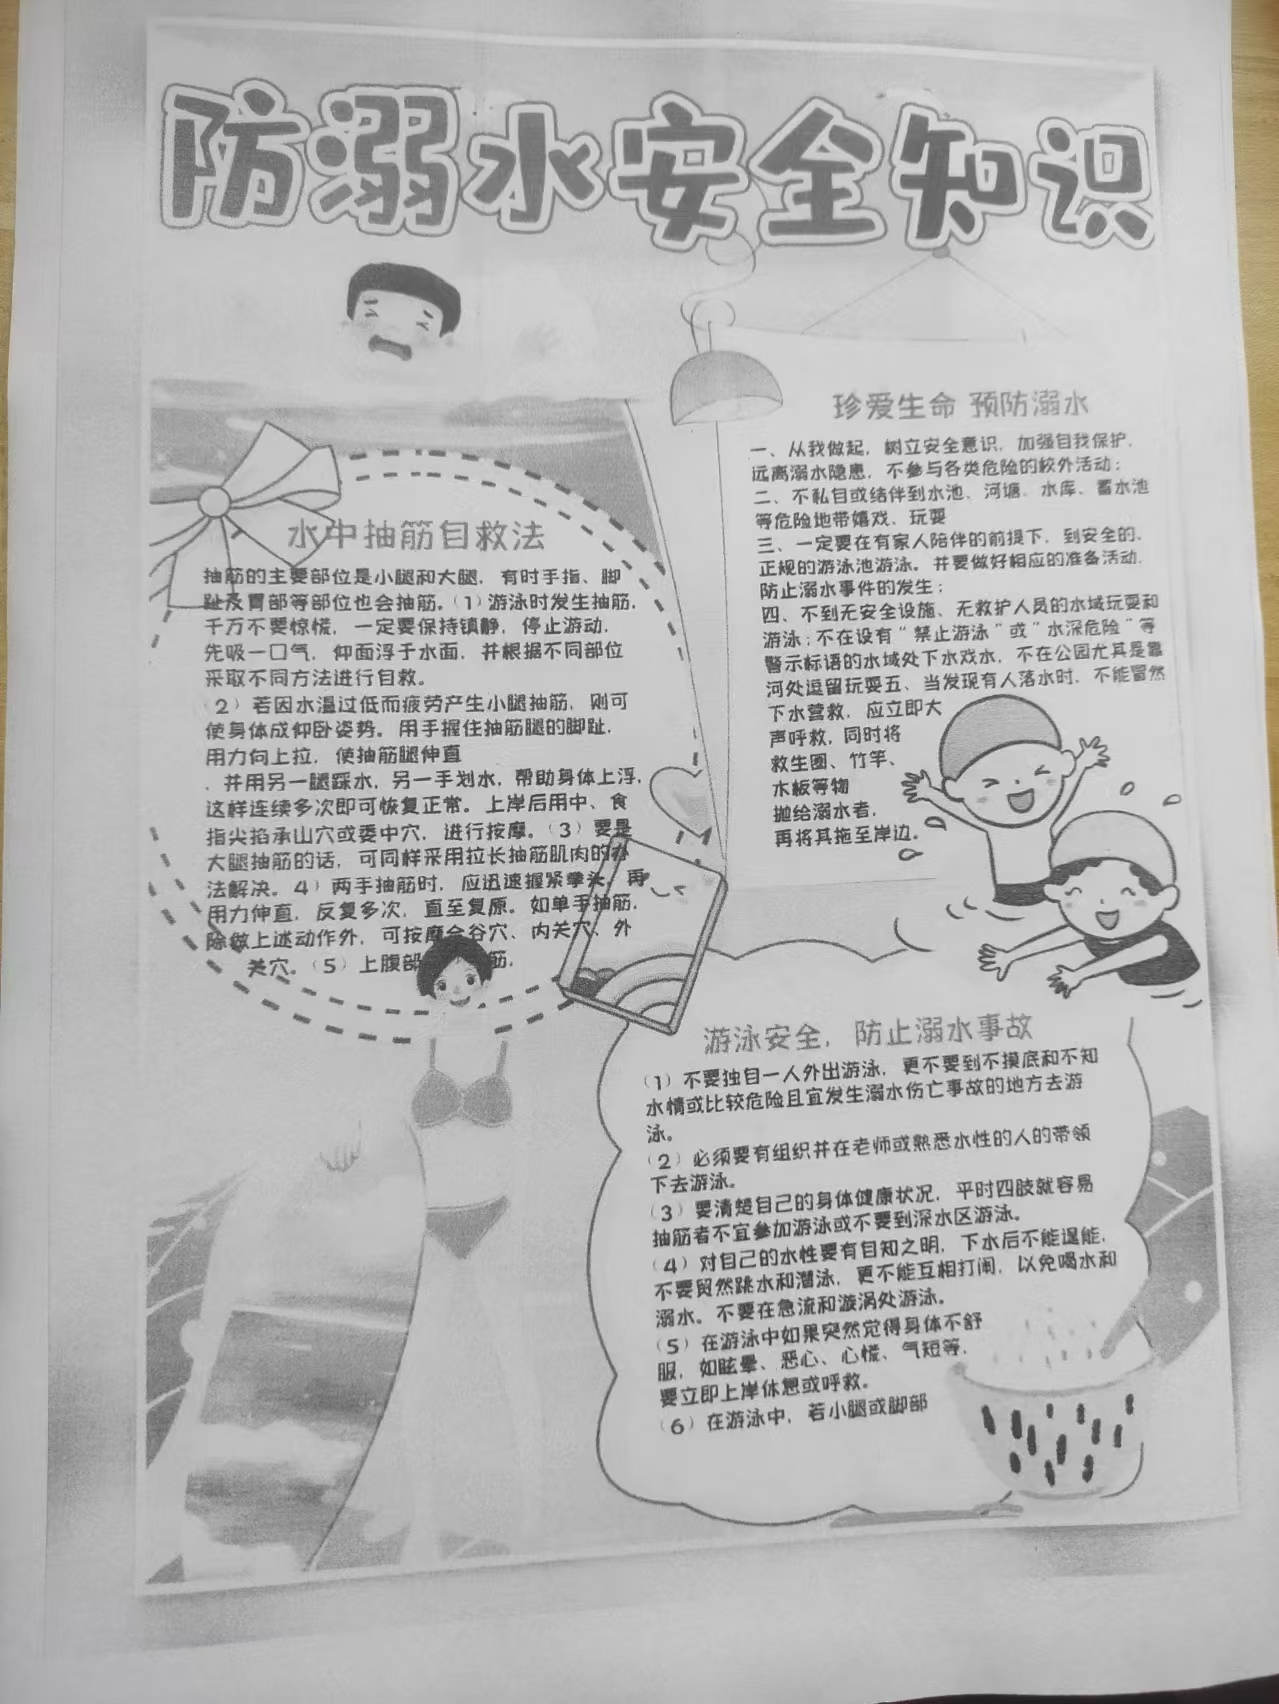 防溺水安全知识
水中抽筋自救法
抽筋的主要部位是小腿和大腿，有时手指、脚
趾及胃部等部位也会抽筋。（1）游泳时发生抽筋，
千万不要惊慌，一定要保持镇静，停止游动，
先吸一口气，仰面浮于水面，并根据不同部位
采取不同方法进行自救。
（2）若因水温过低而疲劳产生小腿抽筋，则可
使身体成仰卧姿势，用手握住抽筋腿的脚趾，
用力向上拉，使抽筋腿伸直
，并用另一腿踩水，另一手划水，帮助身体上浮，
这样连续多次即可恢复正常。上岸后用中、食
指尖掐承山穴或委中穴，进行按摩。（3）要是
大腿抽筋的话，可同样采用拉长抽筋肌肉的办
法解决。4）两手抽筋时，应迅速握紧拳头，再
用力伸直，反复多次，直至复原。如单手抽筋，
除做上述动作外，可按摩合谷穴、内关穴、外
关穴。（5）上腹部 筋，
珍爱生命 预防溺水
一、从我做起，树立安全意识，加强自我保护，
远离溺水隐患，不参与各类危险的校外活动；
二、不私自或结伴到水池、河塘、水库、蓄水池
等危险地带嬉戏、玩耍
三、一定要在有家人陪伴的前提下，到安全的、
正规的游泳池游泳。并要做好相应的准备活动，
防止溺水事件的发生；
四、不到无安全设施、无救护人员的水域玩耍和
游泳；不在设有“禁止游泳”或“水深危险”等
警示标语的水域处下水戏水，不在公园尤其是靠
河处逗留玩耍五、当发现有人落水时，不能冒然
下水营救，应立即大
声呼救，同时将
救生圈、竹竿、
木板等物
抛给溺水者，
再将其拖至岸边。
游泳安全，防止溺水事故
（1）不要独自一人外出游泳，更不要到不摸底和不知
水情或比较危险且宜发生溺水伤亡事故的地方去游
泳。
（2）必须要有组织并在老师或熟悉水性的人的带领
下去游泳。
（3）要清楚自己的身体健康状况，平时四肢就容易
抽筋者不宜参加游泳或不要到深水区游泳。
（4）对自己的水性要有自知之明，下水后不能逞能，
不要贸然跳水和潜泳，更不能互相打闹，以免喝水和
溺水。不要在急流和漩涡处游泳。
（5）在游泳中如果突然觉得身体不舒
服，如眩晕、恶心、心慌、气短等，
要立即上岸休息或呼救。
（6）在游泳中，若小腿或脚部